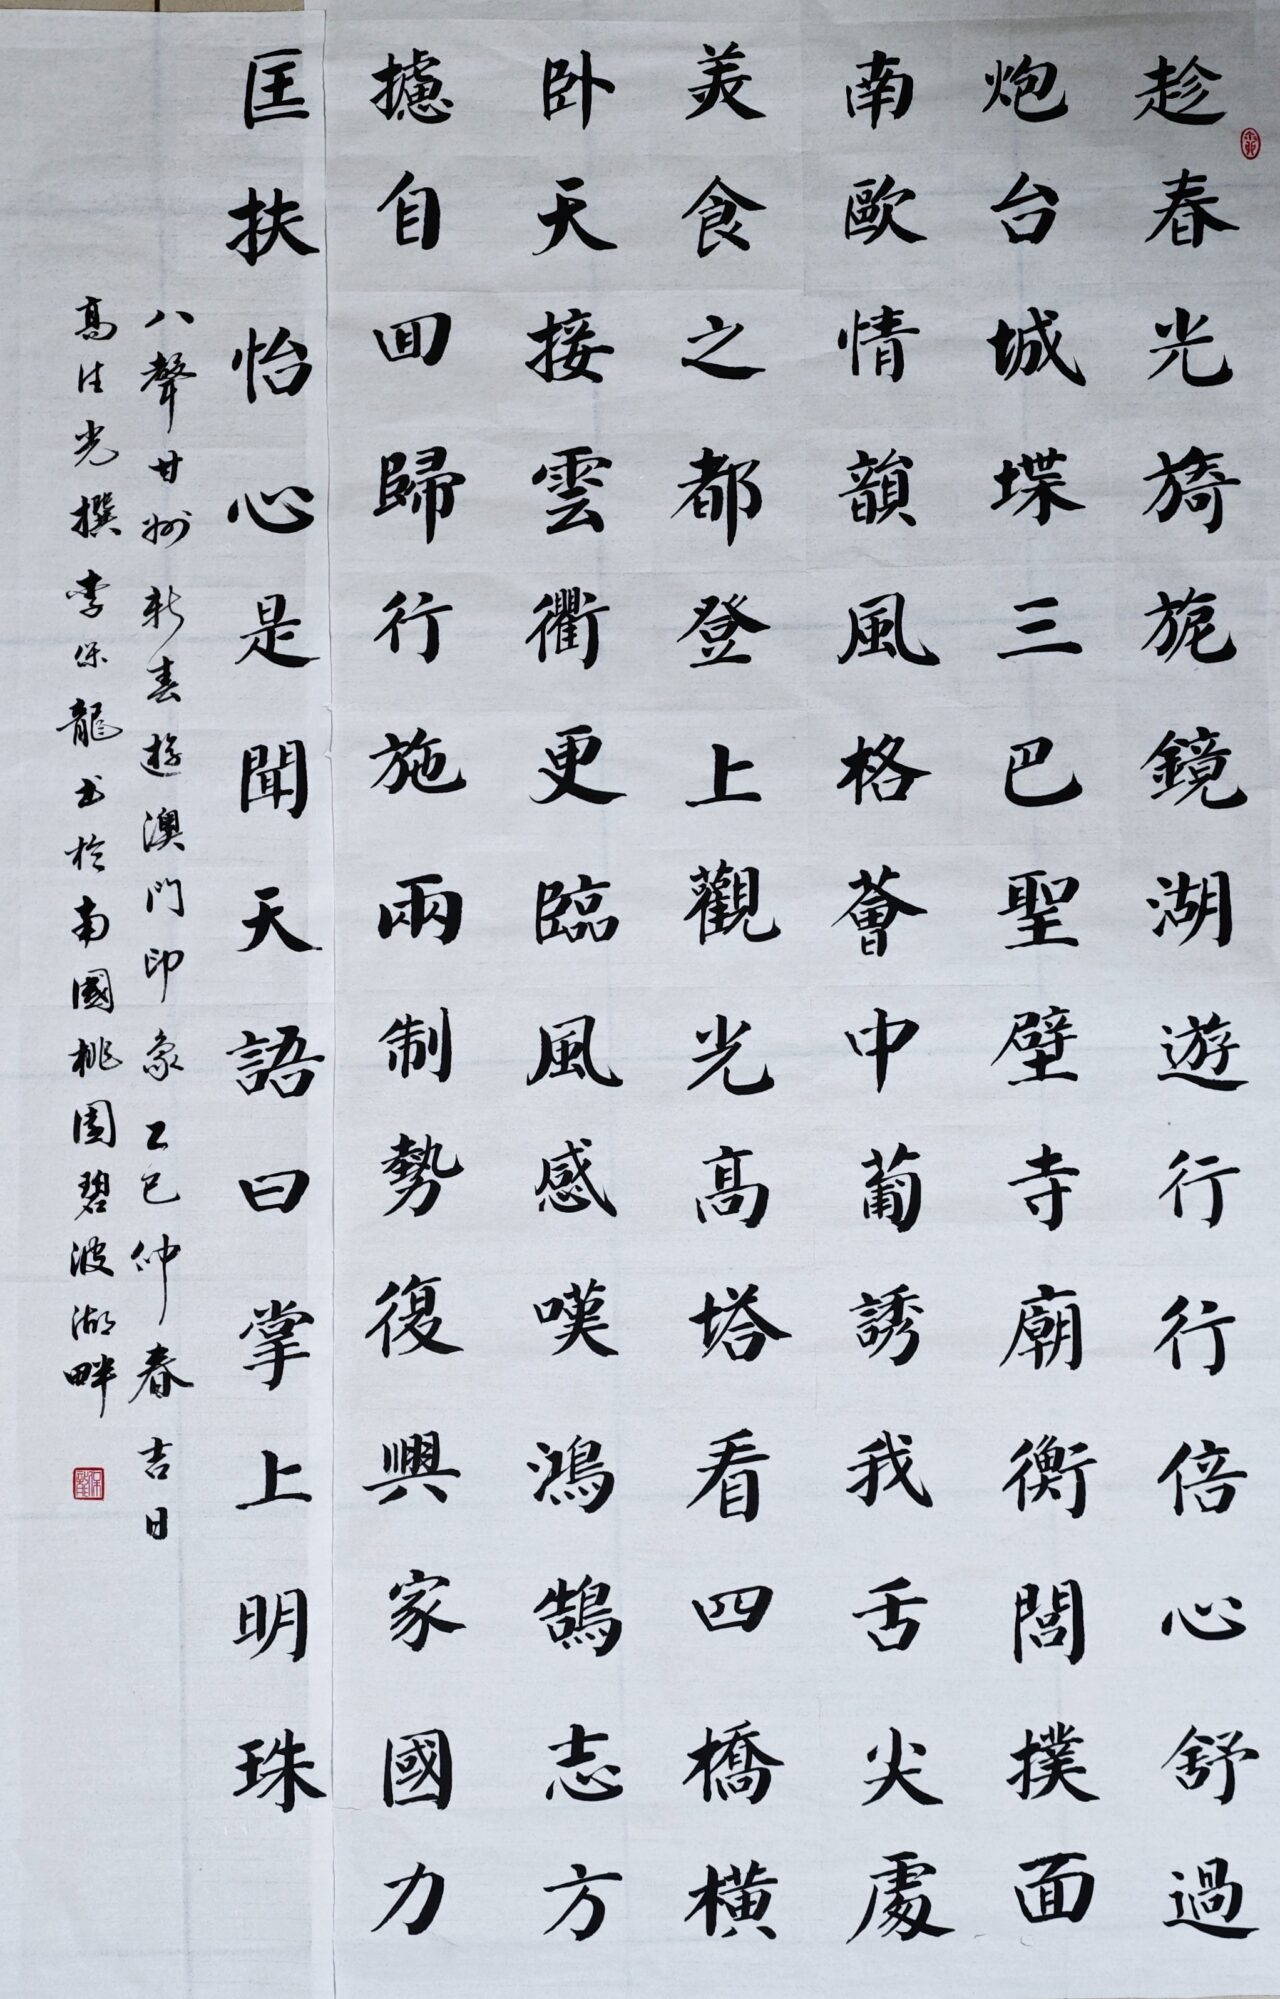 趁春光旖旎鏡湖遊行行倍心舒過
炮台城堞三巴聖壁寺廟衡閭撲面
南歐情韻風格薈中葡誘我舌尖處
美食之都登上觀光高塔看四橋橫
卧天接雲衢更臨風感嘆鴻鵠志方
攄自回歸行施兩制勢復興家國力
匡扶怡心是聞天語曰掌上明珠
八聲甘州新春遊澳門印象乙巳仲春吉日
高佳光撰李保龍书於南國桃園碧波湖畔